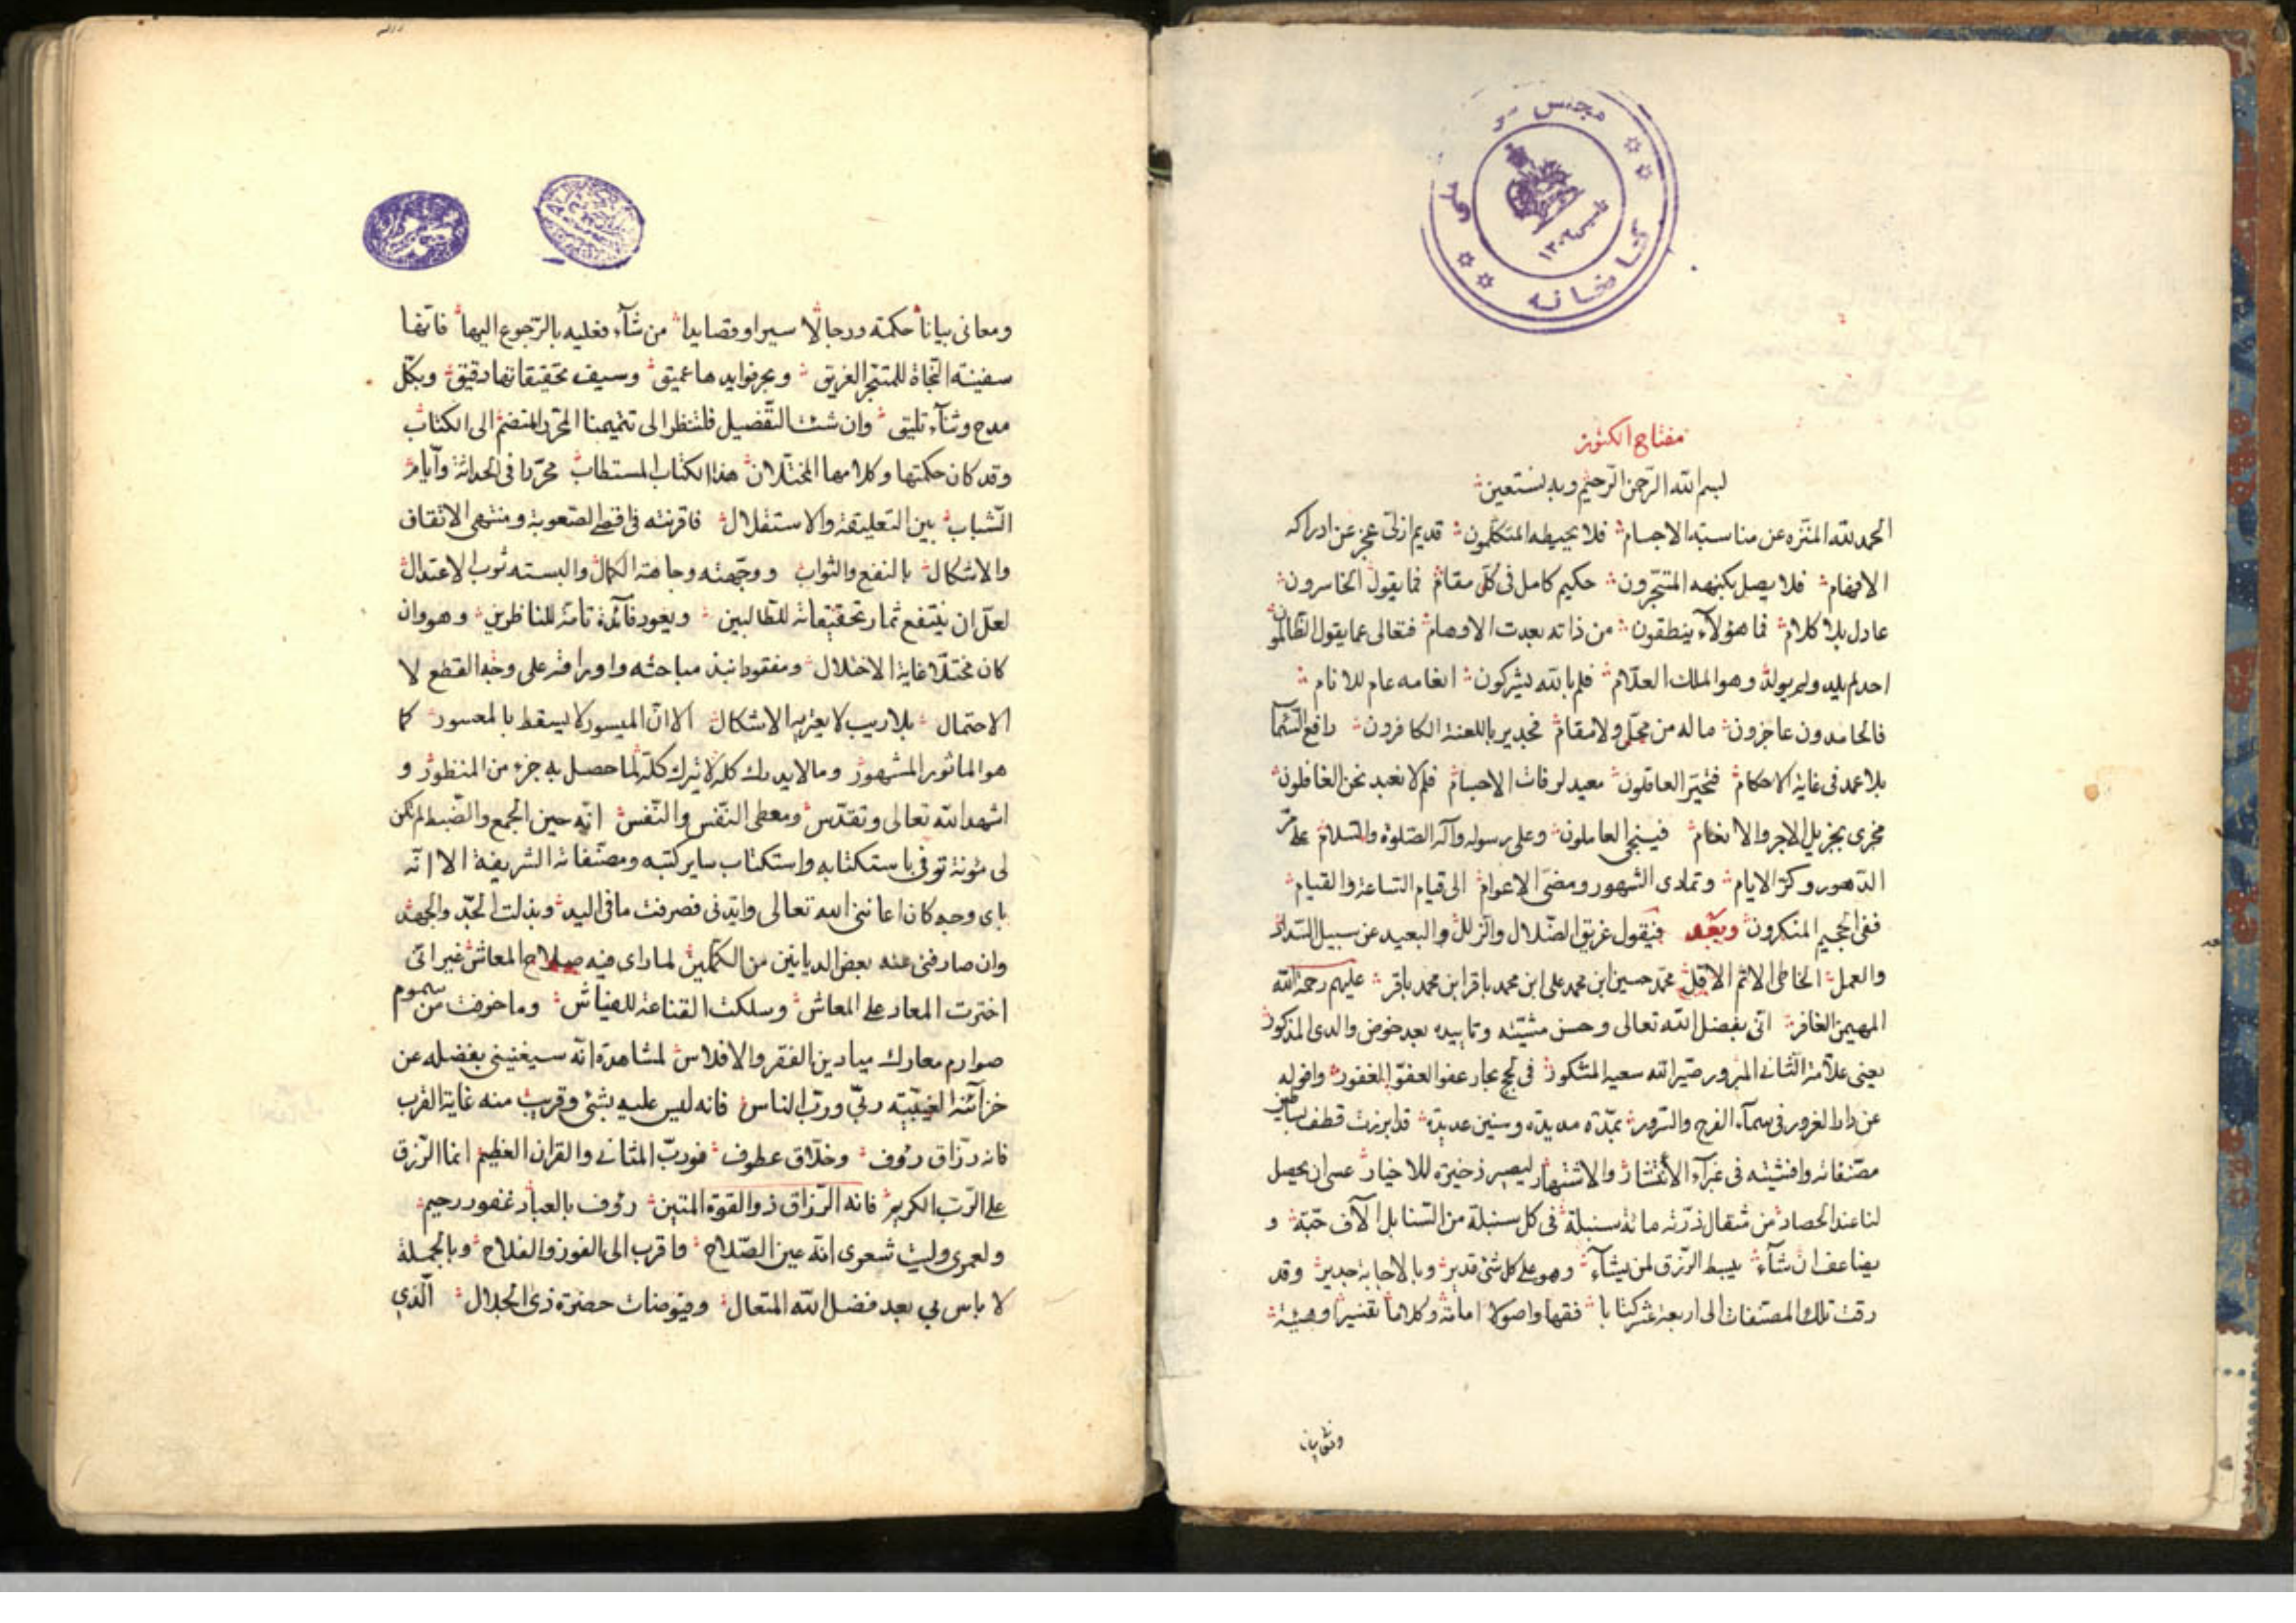 مجلس
ملی
تاسیس ۱۳۰۲
کتابخانه
مفتاح الكنوز
بسم الله الرحمن الرحيم وبه نستعين
الحمد لله المنزه عن مناسبة الاجسام فلا يحيطه المتكلمون قديم ازلي عجز عن ادراكه
الافهام فلا يصل بكنهه المتبحرون حكيم كامل في كل مقام فما يقول الخاسرون
عادل بلا كلام فما هؤلاء ينطقون من ذاته بعدت الاوهام فتعالى عما يقول الظالمون
احد لم يلد ولم يولد وهو الملك العلام فلم بالله يشركون انعامه عام للانام
فالحامدون عاجزون ماله من محل ولا مقام فجدير باللعنة الكافرون رافع السما
بلا عمد في غاية الاحكام فتحير العاقلون معيد لرفات الاجسام فلم لا نعبد نحن الغافلون
مجزى بجزيل الاجر والانعام فينجى العاملون وعلى رسوله وآله الصلوة والسلام على مر
الدهور وكر الايام وتمادى الشهور ومضى الاعوام الى قيام الساعة والقيام
ففى الجحيم المنكرون وبعد فيقول غريق الضلال والزلل والبعيد عن سبيل السداد
والعمل الخاطى الاثم الاقل محمد حسين ابن محمد على ابن محمد باقر ابن محمد باقر عليهم رحمة الله
المهيمن الغافر انى بفضل الله تعالى وحسن مشيته وتاييده بعد خوض والدى المذكور
يعنى علامة الثانى المبرور صير الله سعيه المشكور فى لجج بحار عفو العفو الغفور وافوله
عن دار الغرور فى سماء الفرح والسرور بمدة مديدة وسنين عديدة قد ابرزت قطف بساتين
مصنفاته وافشيته فى غبراء الانتشار والاشتهار ليصير ذخيرة للاخيار عسى ان يحصل
لنا عند الحصاد من مثقال ذرته مائة سنبلة فى كل سنبلة من السنابل آلاف حبة و
يضاعف ان شاء يبسط الرزق لمن يشاء وهو على كل شئ قدير وبالاجابة جدير وقد
رقت تلك المصنفات الى اربعة عشر كتابا فقها واصولا امامة وكلاما تفسيرا وهيئة
ومعانى بيانا حكمة ورجالا سيرا وقصايدا من شاء فعليه بالرجوع اليها فانها
سفينة النجاة للمتبحر الغريق وبحر فوايدها عميق وسيف تحقيقاتها دقيق وبكل
مدح وثناء تليق وان شئت التفصيل فلتنظر الى تتميمنا المحرر المنضم الى الكتاب
وقد كان حكمتها وكلامها المختلان هذا الكتاب المستطاب محررا فى الحداثة وايام
الشباب بين التعليقة والاستقلال فاقرنته فى اقصى الصعوبة ومنتهى الاتقاف
والاشكال بالنفع والثواب ووجهته وجاهة الكمال والبسته ثوب الاعتدال
لعل ان ينتفع ثمار تحقيقاته للطالبين ويعود فائدة تامة للناظرين وهو وان
كان مختلا غاية الاختلال ومفقودا نبذ مباحثه واوراقه على وجه القطع لا
الاحتمال بلا ريب لا يعتريه الاشكال الا ان الميسور لا يسقط بالمعسور كما
هو الماثور المشهور وما لا يدرك كله لا يترك كله لما حصل به جزء من المنظور و
اشهد الله تعالى وتقدس ومعطى النفس والنفس انه حين الجمع والضبط لم تكن
لى مئونة توفى باستكتابه واستكتاب ساير كتبه ومصنفاته الشريفة الا انه
باى وجه كان اعاننى الله تعالى وايدنى فصرفت ما فى اليد وبذلت الجد والجهد
وان صارفنى عنه بعض الديانين من الكملين لما راى فيه صلاح المعاش غير انى
اخترت المعاد على المعاش وسلكت القناعة للعياش وما خوفت من سموم
صوارم معارك ميادين الفقر والافلاس لمشاهدة انه سيغنينى بفضله عن
خزائنه الغيبية ربى ورب الناس فانه ليس عليه بشئ وقريب منه غاية القرب
فانه رزاق رؤف وخلاق عطوف فورب المثانى والقران العظيم انما الرزق
على الرب الكريم فانه الرزاق ذو القوة المتين رؤف بالعباد غفور رحيم
ولعمرى وليت شعورى انه عين الصلاح واقرب الى الفوز والفلاح وبالجملة
لا باس بى بعد فضل الله المتعال وفيوضات حضرة ذى الجلال الذى